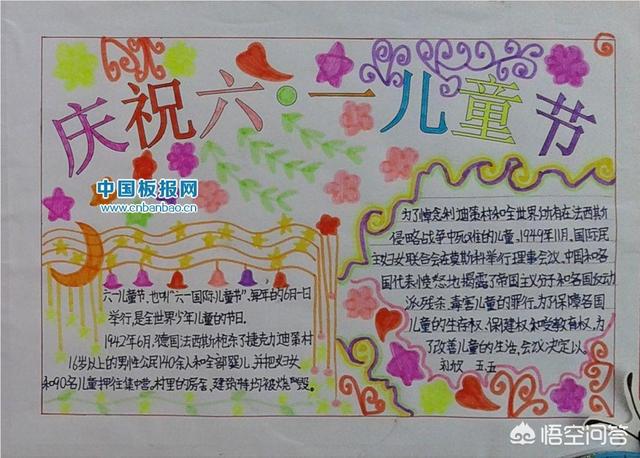 庆祝六·一儿童节
中国板报网
www.cnbanbao.cn
六一儿童节,也叫"六一国际儿童节",每年的6月1日
举行,是全世界少年儿童的节日。
1942年6月,德国法西斯枪杀了捷克利迪策村
16岁以上的男性公民140余人和全部婴儿,并把妇女
和90名儿童押往集中营。村里的房舍、建筑物均被烧毁。
为了悼念利迪策村和全世界所有在法西斯
侵略战争中死难的儿童,1949年11月,国际民
主妇女联合会在莫斯科举行理事会议,中国和各
国代表愤怒地揭露了帝国主义分子和各国反动
派残杀、毒害儿童的罪行。为了保障各国
儿童的生存权、保健权和受教育权,为
了改善儿童的生活,会议决定以。
五五
悟空问答